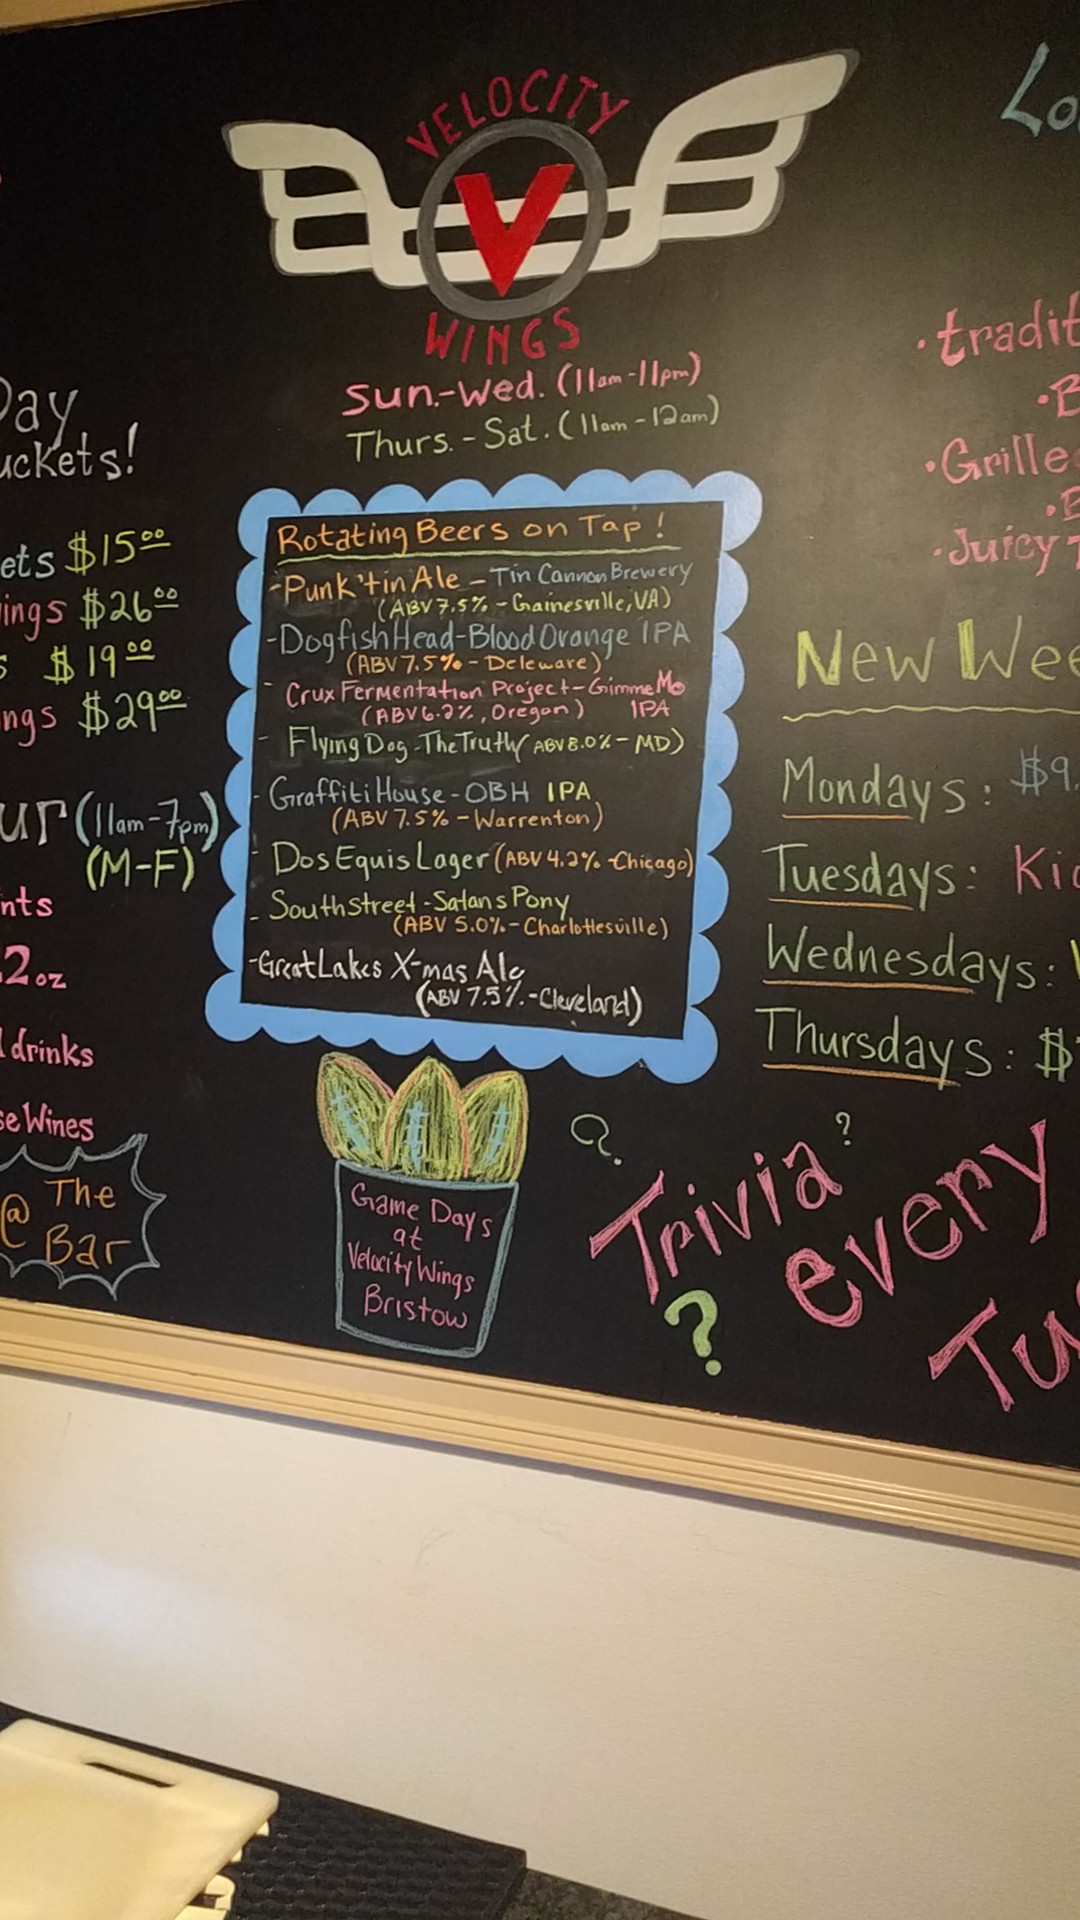 VELOCITY
V
WINGS
Sun.-Wed. (11am-11pm)
Thurs.-Sat. (11am-12am)
Day
uckets!
ets $15.00
ings $26.00
s $19.00
ngs $29.00
ur (11am-7pm)
(M-F)
nts
2oz
drinks
se Wines
@ The
Bar
Rotating Beers on Tap!
-Punk'tin Ale - Tin Cannon Brewery
(ABV 7.5% - Gainesville, VA)
-Dogfish Head-Blood Orange IPA
(ABV 7.5% - Deleware)
- Crux Fermentation Project-Gimme Mo
(ABV 6.2%, Oregan) IPA
- Flying Dog-The Truth ABV 8.0% - MD)
- Graffiti House-OBH IPA
(ABV 7.5% - Warrenton)
- Dos Equis Lager (ABV 4.2% -Chicago)
- Southstreet-Satans Pony
(ABV 5.0% - Charlottesville)
-Great Lakes X-mas Ale
(ABV 7.5% -Cleveland)
Game Days
at
Velocity Wings
Bristow
Lo
·tradit
·B
·Grille
·Juicy
New Wee
Mondays: $9.
Tuesdays: Kid
Wednesdays:
Thursdays: $
? Trivia ?
every
?
Tu